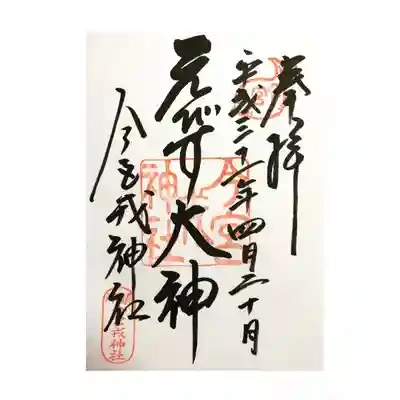 奉拝
平成三十一年四月二十日
ゑびす大神
今宮戎神社
戎神社